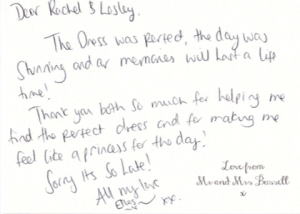 Dear Rachel & Lesley.
The Dress was perfect, the day was
Stunning and our memories will last a life
time!
Thank you both so much for helping me
find the perfect dress and for making me
feel like a princess for the day!
Sorry Its So Late!
All my love
xx.
Love from
Mr and Mrs Boswell
x